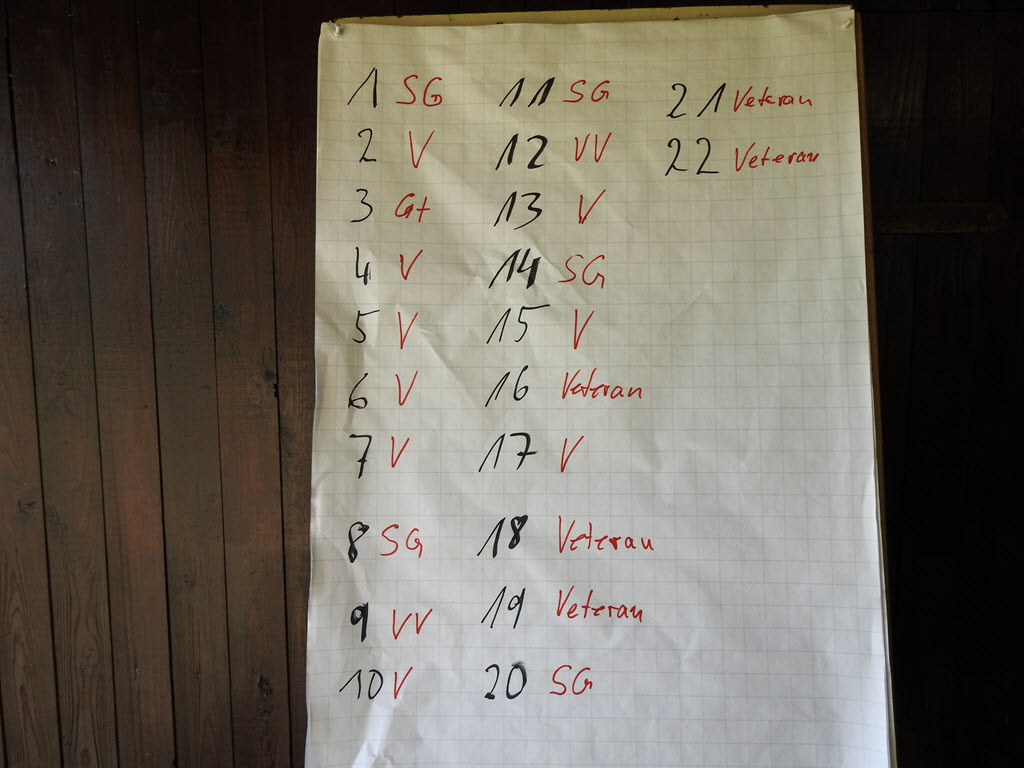 1 SG
2 V
3 Gt
4 V
5 V
6 V
7 V
8 SG
9 VV
10 V
11 SG
12 VV
13 V
14 SG
15 V
16 Veteran
17 V
18 Veteran
19 Veteran
20 SG
21 Veteran
22 Veteran